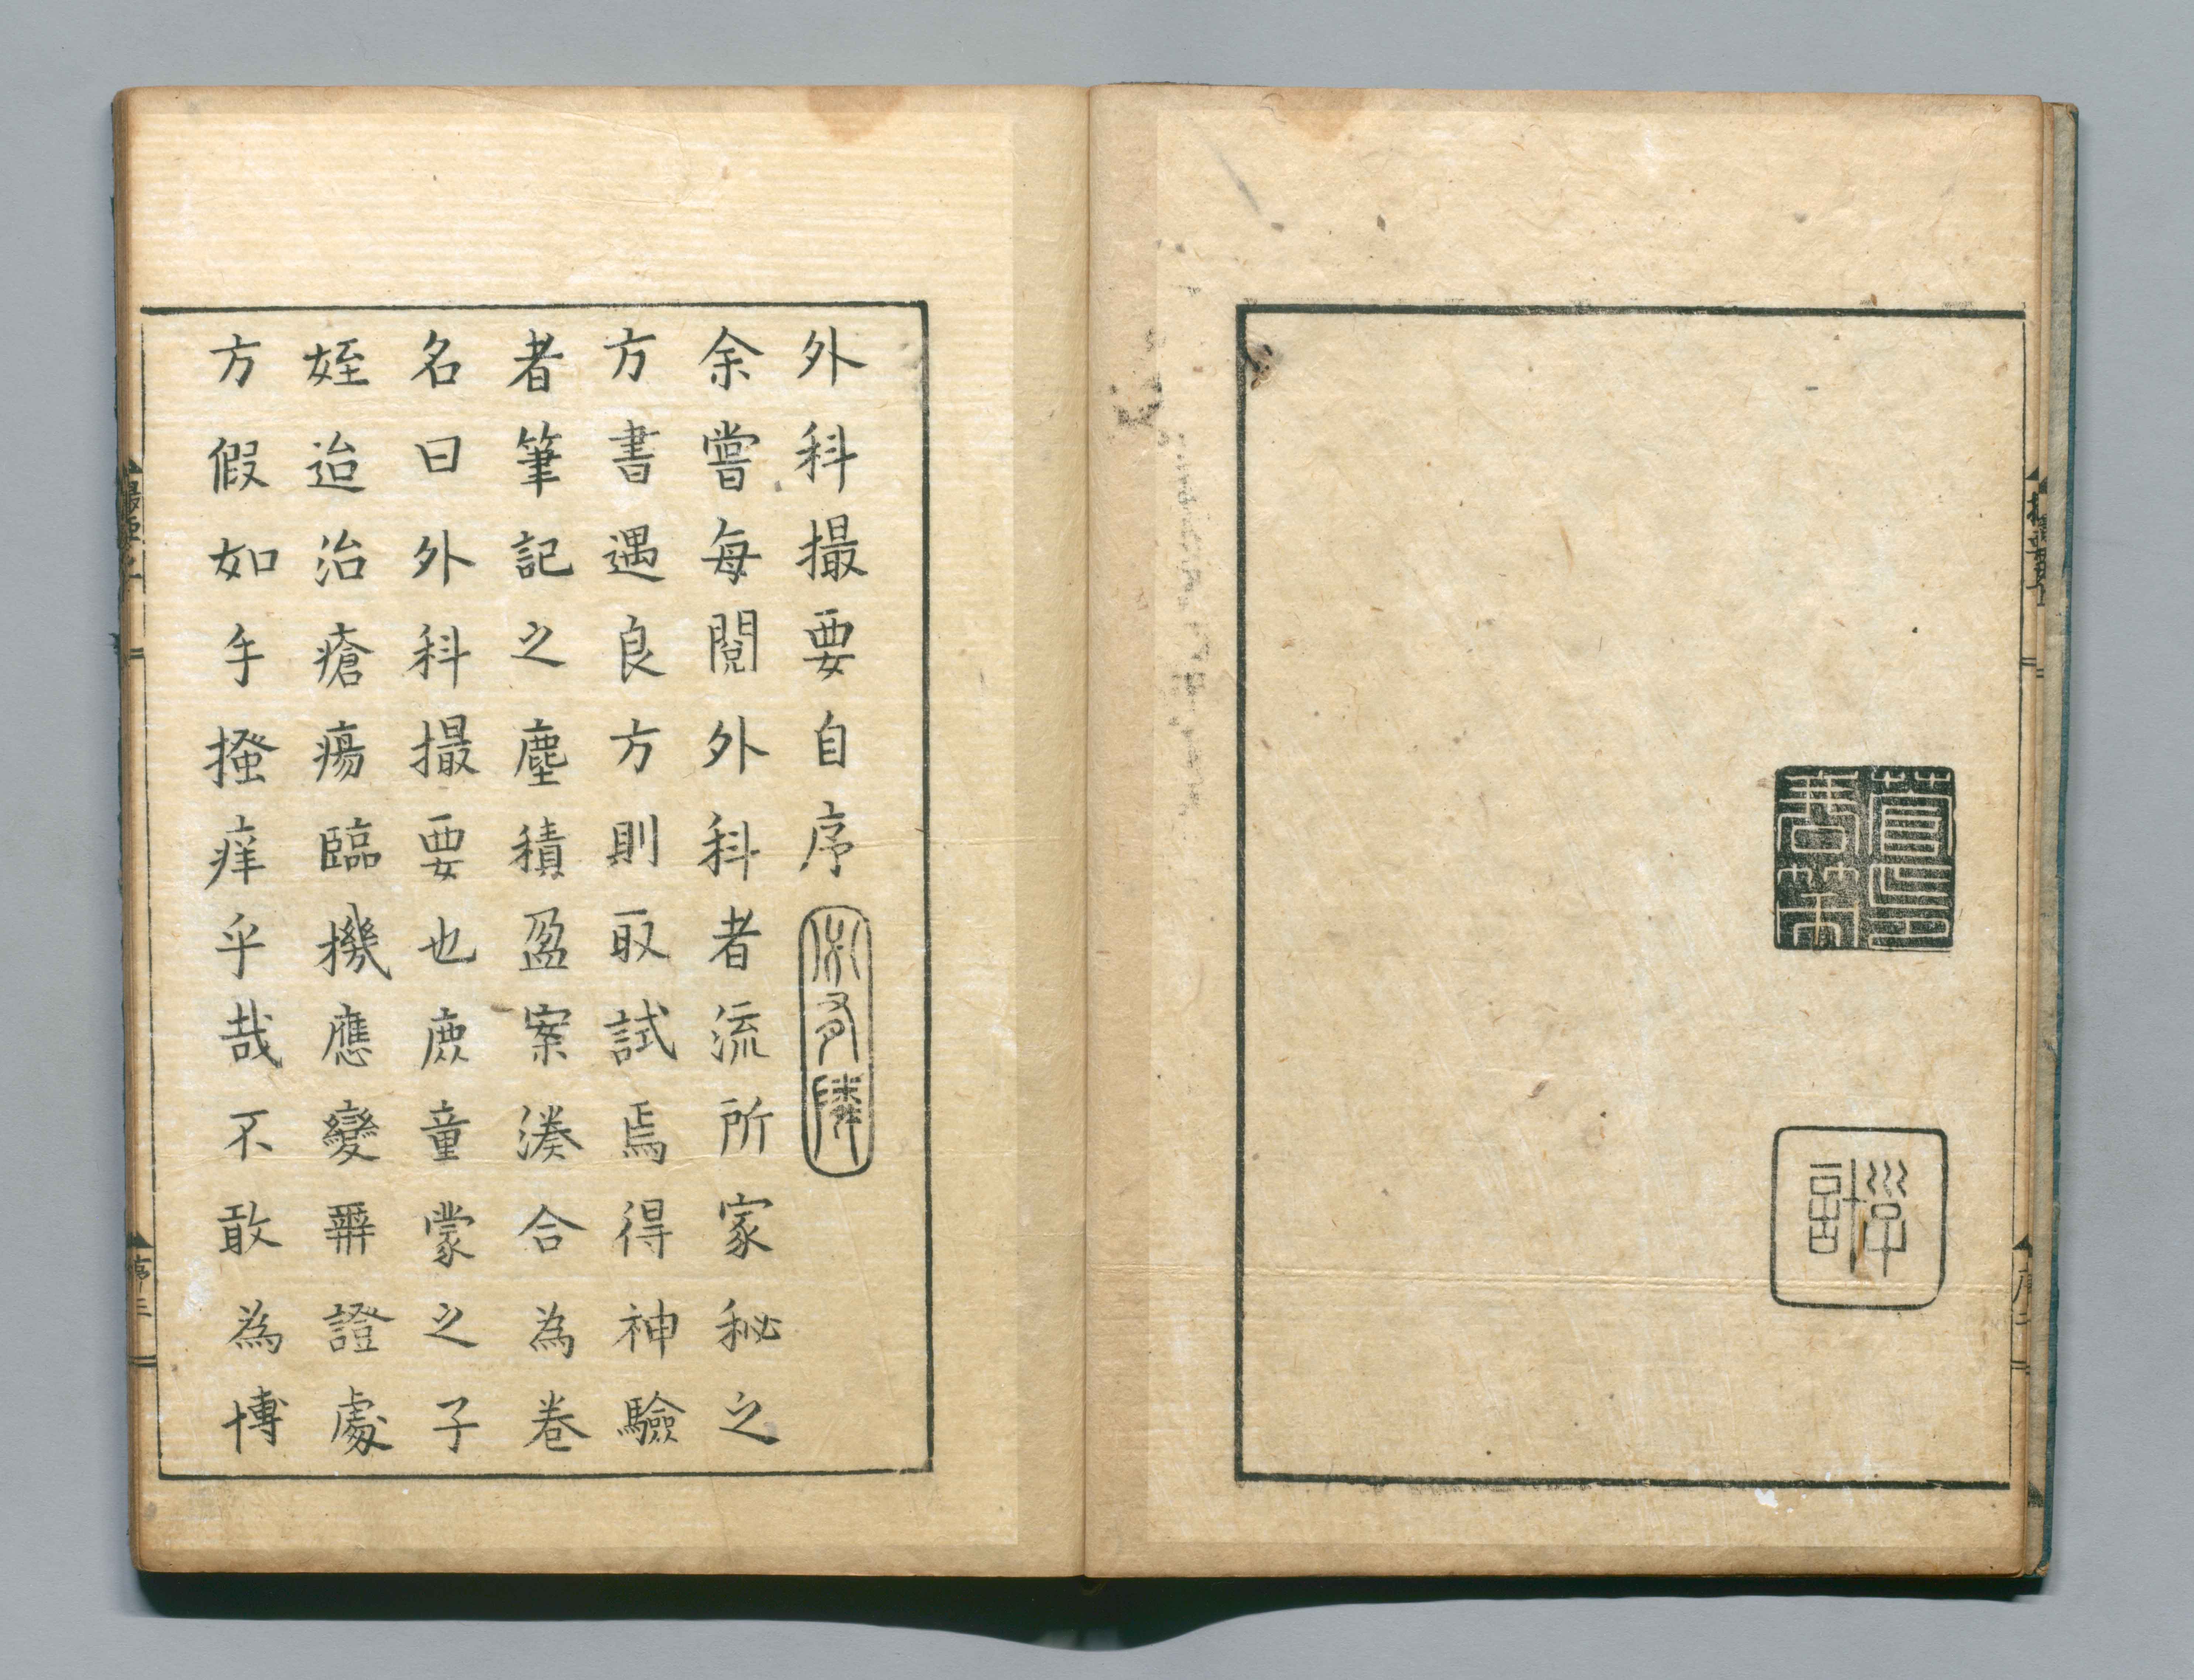 外科撮要自序
余嘗毎閲外科者流所家秘之
方書遇良方則取試焉得神驗
者筆記之塵積盈案湊合為卷
名曰外科撮要也庶童蒙之子
姪迨治瘡瘍臨機應變辨證處
方假如手掻痒乎哉不敢為博